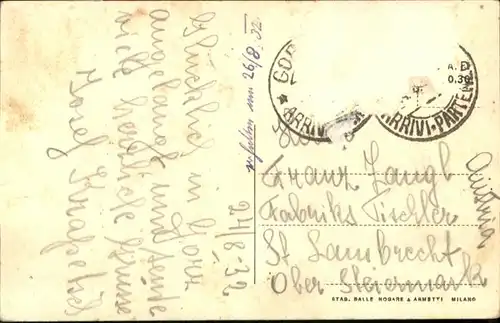 Glücklich in Görz
angelangt und sende
viele herzliche Grüsse
Josef
24/8-32
erhalten am 26/8. 32
GOR
ARRIVI
ARRIVI-PARTENZ
A. E
0.30
Franz Zangl
Fabriks Tischler
St Lambrecht
Ober Steiermark
Austria
STAB. DALLE NOGARE & ARMETTI MILANO